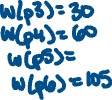 w(p3) = 30
w(p4) = 60
w(p5) =
w(p6) = 105